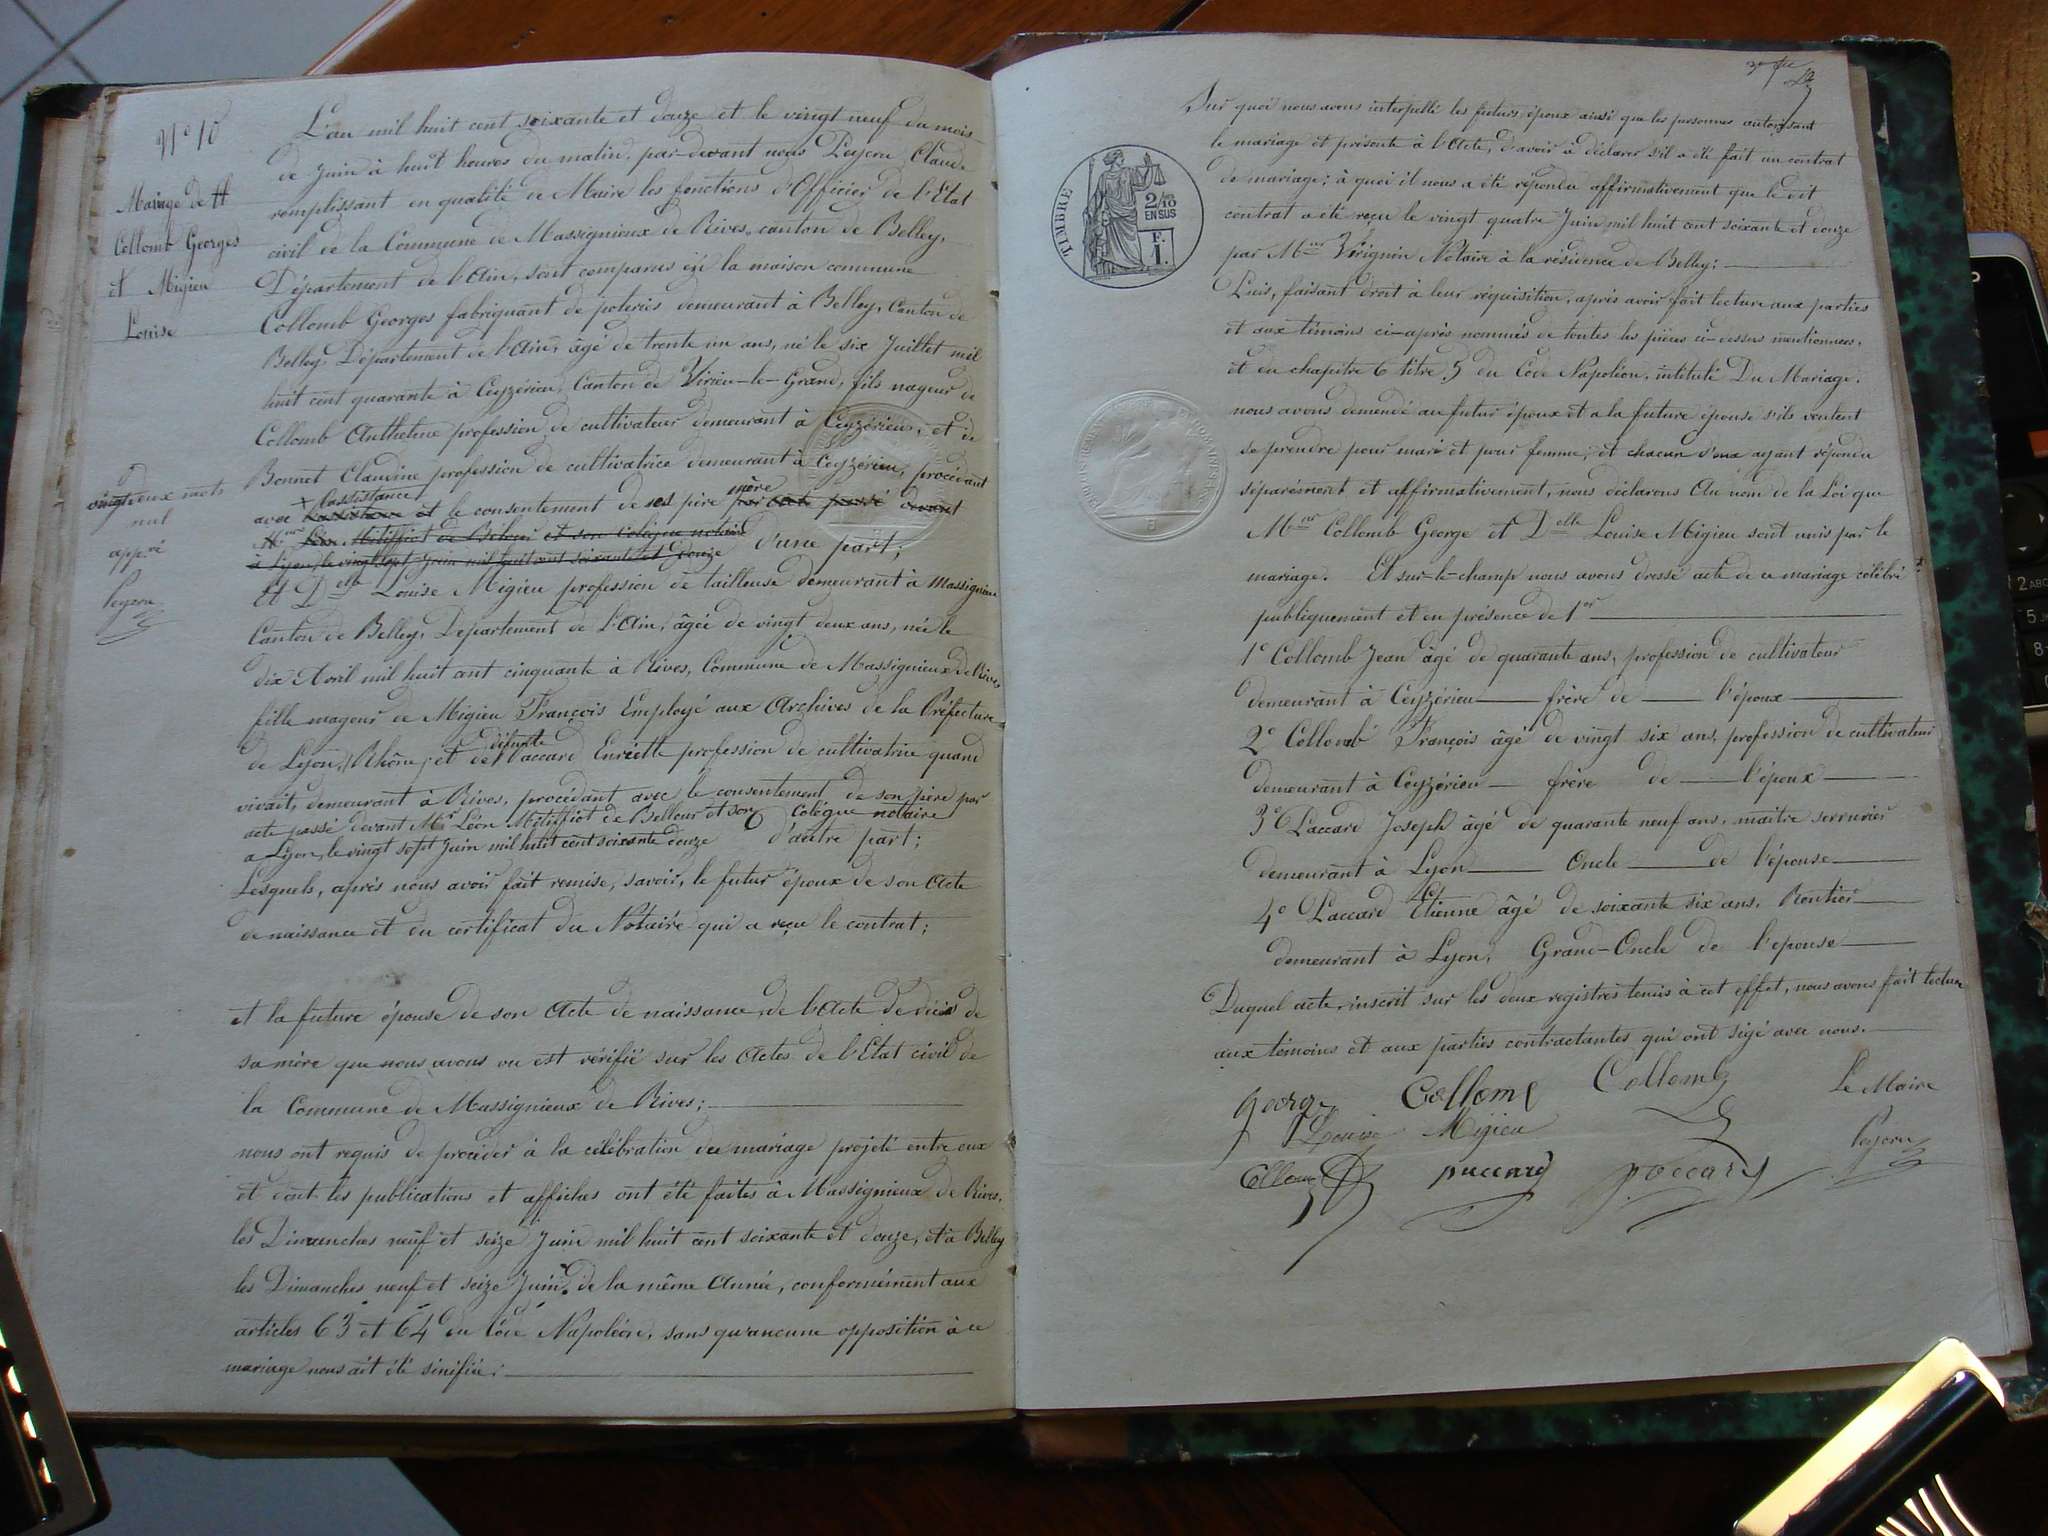 N° 10
Mariage de
Collomb Georges
et Migieu
Louise
L'an mil huit cent soixante et douze et le vingt neuf du mois
de Juin à huit heures du matin, par-devant nous Peysru Claude
remplissant en qualité de Maire les fonctions d'Officier de l'Etat
civil de la Commune de Massignieux de Rives, canton de Belley,
Département de l'Ain, sont comparus en la maison commune
Collomb Georges fabriquant de poteries demeurant à Belley, Canton de
Belley, Département de l'Ain, âgé de trente un ans, né le six Juillet mil
huit cent quarante à Ceyzérieu, Canton de Virieu-le-Grand, fils mageur de
Collomb Anthelme profession de cultivateur demeurant à Ceyzérieu, et de
Bonnet Claudine profession de cultivatrice demeurant à Ceyzérieu, procédant
l'assistance mère
avec et le consentement de ses père par acte passé devant
Mr Léon Mitiffiot de Belleur et son colègue notaire d'une part;
à Lyon, le vingt sept Juin mil huit cent soixante et douze
vingt deux mots
nul
appvé
Peysru
Et Delle Louise Migieu profession de tailleuse demeurant à Massignieu
Canton de Belley, Département de l'Ain, âgée de vingt deux ans, née le
dix Avril mil huit cent cinquante à Rives, Commune de Massignieux de Rives
fille mageur de Migieu François Employé aux Archives de la Préfecture
défunte
de Lyon, Rhône, et de Paccard Enriette profession de cultivatrice quand
vivait, demeurant à Rives, procédant avec le consentement de son père par
acte passé devant Mr Léon Mitiffiot de Belleur et son Colègue notaire
à Lyon, le vingt sept Juin mil huit cent soixante douze d'autre part;
Lesquels, après nous avoir fait remise, savoir, le futur époux de son Acte
de naissance et du certificat du Notaire qui a reçu le contrat;
et la future épouse de son Acte de naissance, de l'Acte de décès de
sa mère que nous avons vu est vérifié sur les Actes de l'Etat civil de
la Commune de Massignieux de Rives;
nous ont requis de procéder à la célébration du mariage projeté entre eux
et dont les publications et affiches ont été faites à Massignieux de Rives,
les Dimanches neuf et seize Juin mil huit cent soixante et douze, et à Belley
les Dimanches neuf et seize Juin de la même Année, conformément aux
articles 63 et 64 du Code Napoléon, sans qu'aucune opposition à ce
mariage nous ait été sinifiée;
TIMBRE
2/10
EN SUS
F.
1.
Sur quoi nous avons interpellé les futurs époux ainsi que les personnes autorisant
le mariage et présente à l'Acte, d'avoir à déclarer s'il a été fait un contrat
de mariage; à quoi il nous a été répondu affirmativement que le dit
contrat a été reçu le vingt quatre Juin mil huit cent soixante et douze
par Mr Virignin Notaire à la résidence de Belley;
Puis, faisant droit à leur réquisition, après avoir fait lecture aux parties
et aux témoins ci-après nommés de toutes les pièces ci-dessus mentionnées,
et du chapitre 6 titre 5 du Code Napoléon, intitulé Du Mariage,
nous avons demandé au futur époux et à la future épouse s'ils veulent
se prendre pour mari et pour femme; et chacun d'eux ayant répondu
séparément et affirmativement, nous déclarons Au nom de la Loi que
Mr Collomb George et Delle Louise Migieu sont unis par le
mariage. Et sur-le-champ nous avons dressé acte de ce mariage célébré
publiquement et en présence de 1er
1° Collomb Jean âgé de quarante ans, profession de cultivateur
demeurant à Ceyzérieu frère de l'époux
2° Collomb François âgé de vingt six ans, profession de cultivateur
demeurant à Ceyzérieu frère de l'époux
3° Paccard Joseph âgé de quarante neuf ans, maître serrurier
demeurant à Lyon Oncle de l'épouse
4° Paccard Etienne âgé de soixante six ans, Rentier
demeurant à Lyon, Grand-Oncle de l'épouse
Duquel acte, inscrit sur les deux registres tenus à cet effet, nous avons fait lecture
aux témoins et aux parties contractantes qui ont sigé avec nous.
George Collomb Collomb Le Maire
Louise Migieu Peysru
Collomb paccard J. Paccard